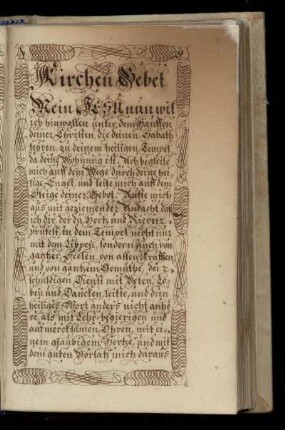 Kirchen Gebet
Mein JESU nun wil
ich hinwallen unter dem Hauffen
deiner Christen die deinen Sabath
feyren, zu deinem heiligen Tempel
da deine Wohnung ist. Ach begleite
mich auff dem Wege durch deine hei-
lige Engel, und leite mich auff dem
Steige deiner Gebot. Rüste mich
aus mit geziemender Andacht daß
ich dir der du Hertz und Nieren
prüfest, in dem Tempel nicht nur
mit dem Lippen, sondern auch von
gantzer Seelen, von allen Krafften
und von gantzem Gemüthe, den
schuldigen Dienst mit Beten, Lo-
ben und Dancken, leiste, und dein
heiliges Wort anders nicht anhö-
re als mit Lehr-begierigen und
aufmercksamen Ohren, mit ei-
nem glaubigem Hertze, und mit
dem guten Vorsatz mich daraus